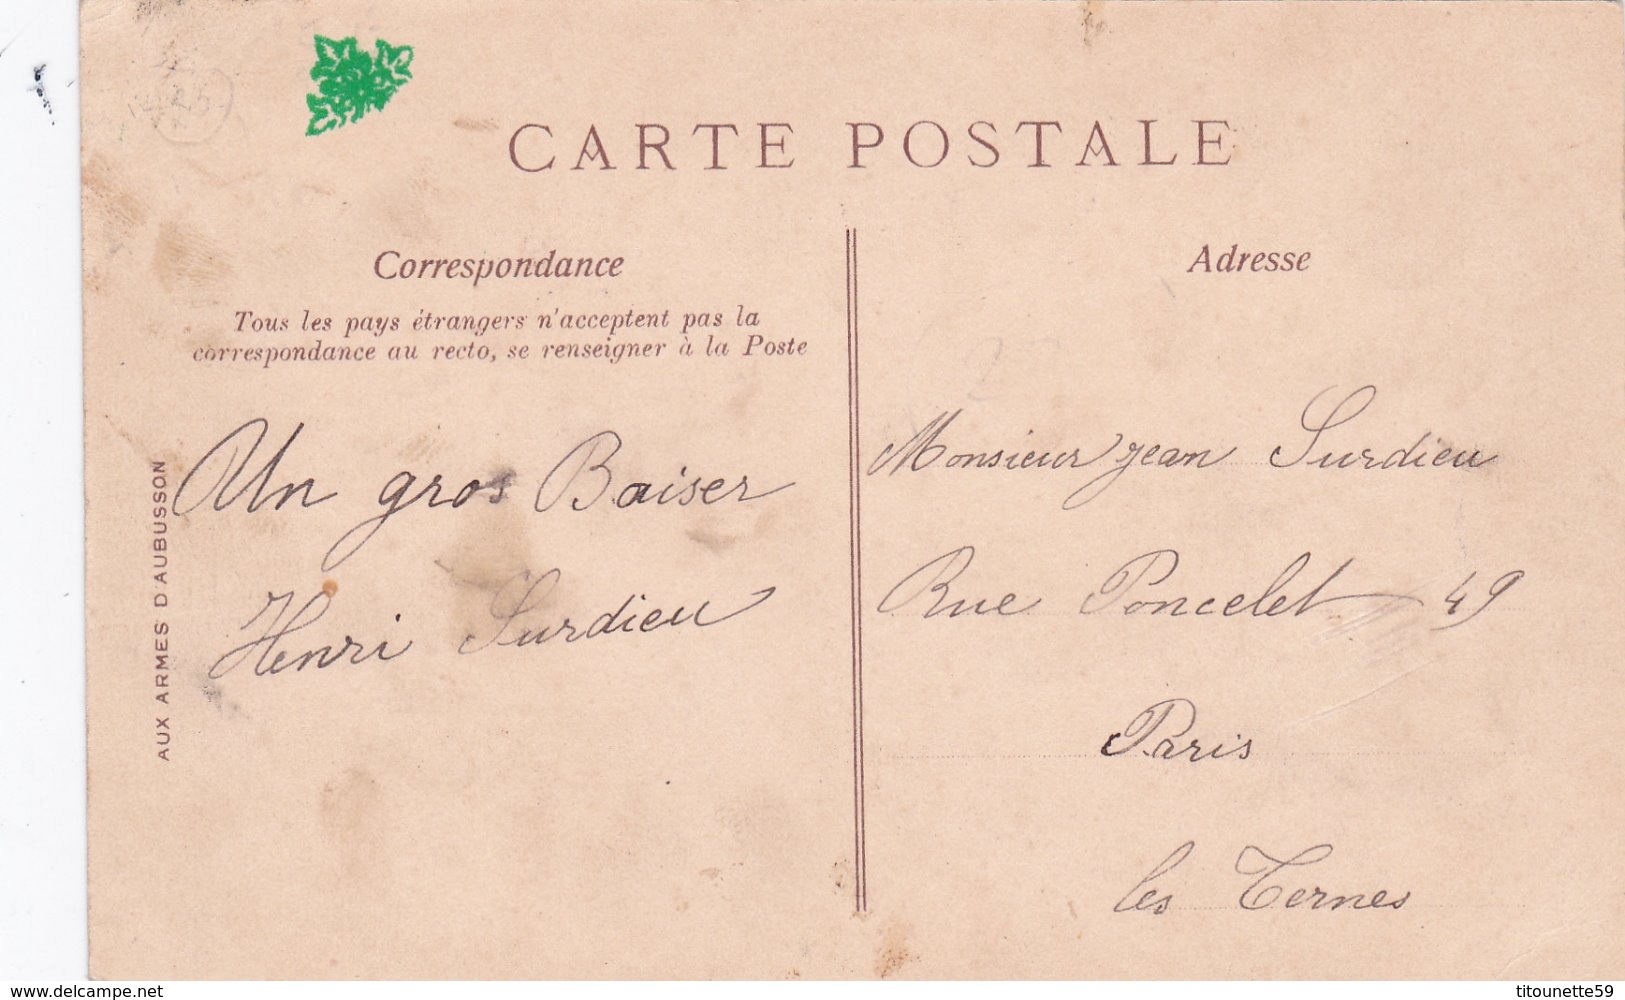 CARTE POSTALE
Correspondance
Tous les pays étrangers n'acceptent pas la
correspondance au recto, se renseigner à la Poste
Un gros Baiser
Henri Surdieu
AUX ARMES D'AUBUSSON
Adresse
Monsieur Jean Surdieu
Rue Poncelet 49
Paris
les Ternes
www.delcampe.net
titounette59